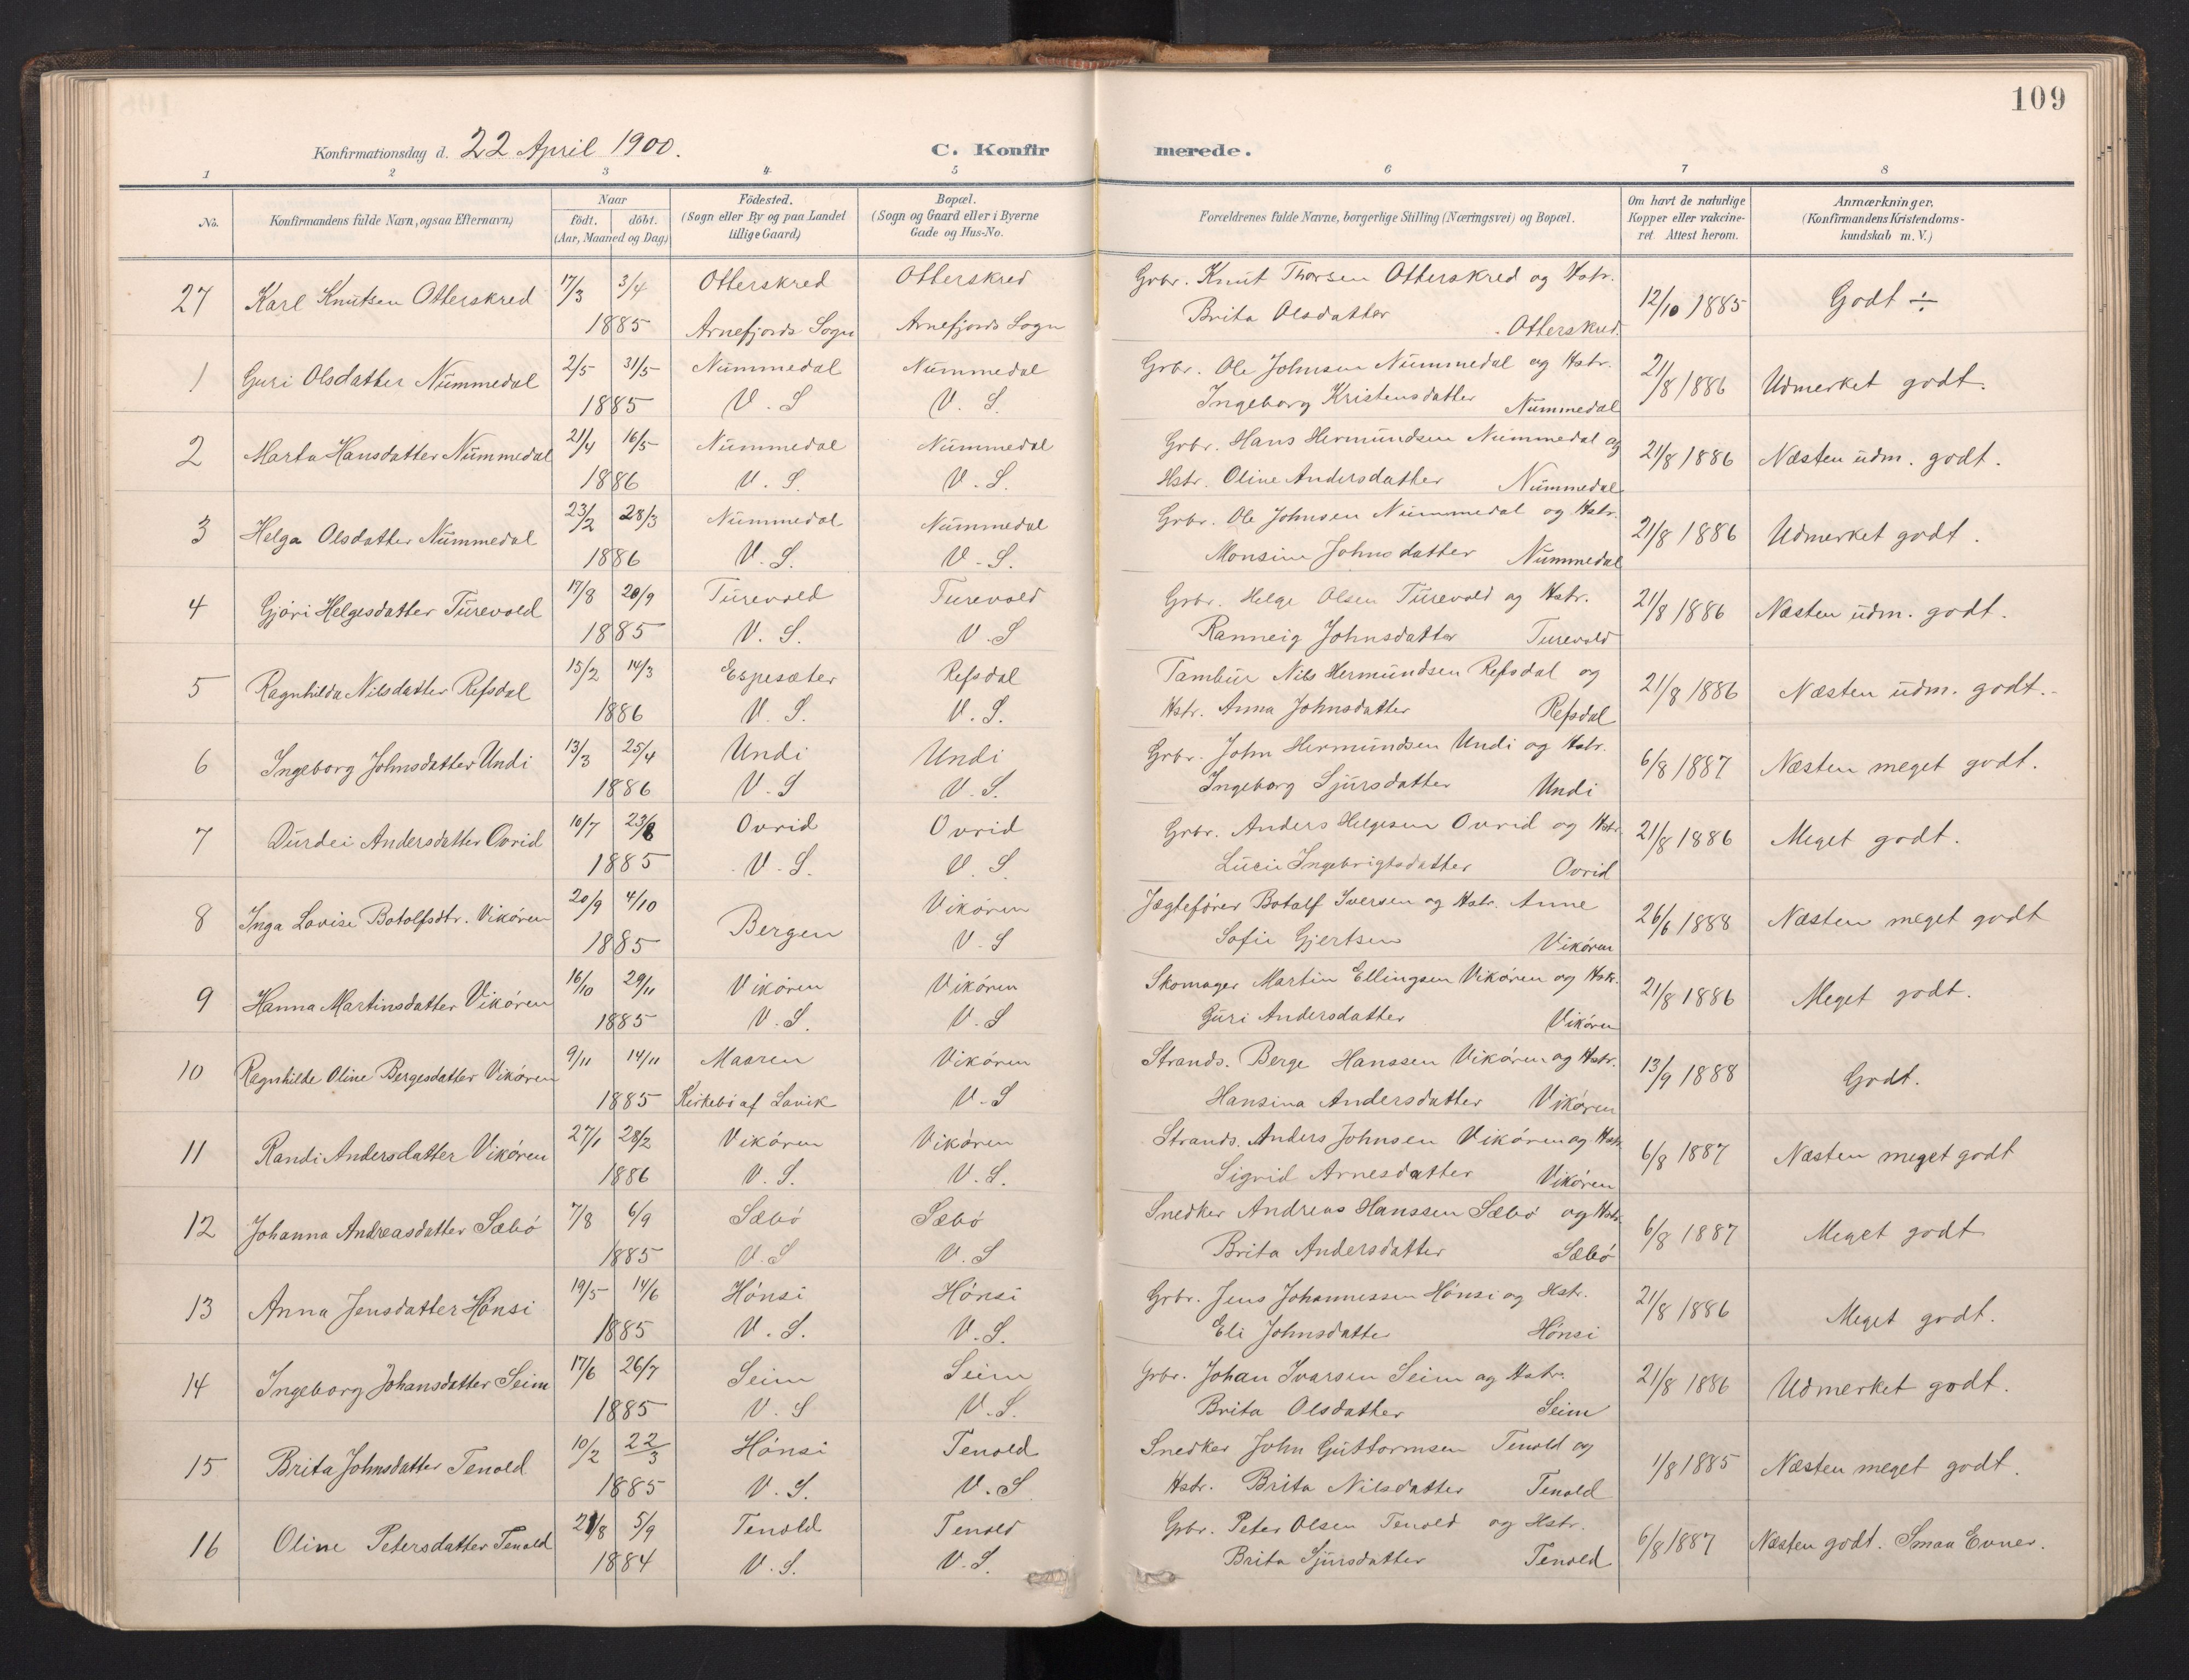 109
Konfirmationsdag d. 22 April 1900.
C. Konfirmerede.
1 2 3 4 5 6 7 8
No. | Konfirmandens fulde Navn, ogsaa Efternavn) | Naar födt. döbt. (Aar, Maaned og Dag) | Födested. (Sogn eller By og paa Landet tillige Gaard) | Bopæl. (Sogn og Gaard eller i Byerne Gade og Hus-No. | Forældrenes fulde Navne, borgerlige Stilling (Næringsvei) og Bopæl. | Om havt de naturlige Kopper eller vakcineret Attest herom. | Anmærkninger. (Konfirmandens Kristendomskundskab m. V.)
27 Karl Knutsen Otterskred 17/3 3/4 Otterskred Otterskred Grbr. Knut Thorsen Otterskred og Hstr. 12/10 1885 Godt ÷
1885 Arnefjords Sogn Arnefjords Sogn Brita Olsdatter Otterskred.
1 Guri Olsdatter Nummedal 2/5 31/5 Nummedal Nummedal Grbr. Ole Johnsen Nummedal og Hstr. 21/8 1886 Udmerket godt.
1885 V. S V. S. Ingeborg Kristensdatter Nummedal
2 Marta Hansdatter Nummedal 21/4 16/5 Nummedal Nummedal Grbr. Hans Hermundsen Nummedal og 21/8 1886 Næsten udm. godt.
1886 V. S. V. S. Hstr. Oline Andersdatter Nummedal
3 Helga Olsdatter Nummedal 23/2 28/3 Nummedal Nummedal Grbr. Ole Johnsen Nummedal og Hstr. 21/8 1886 Udmerket godt.
1886 V. S. V. S. Monsine Johnsdatter Nummedal
4 Gjöri Helgesdatter Turevold 17/8 20/9 Turevold Turevold Grbr. Helge Olsen Turevold og Hstr. 21/8 1886 Næsten udm. godt.
1885 V. S. V. S Ranneig Johnsdatter Turevold
5 Ragnhilda Nilsdatter Refsdal 15/2 14/3 Espesæter Refsdal Tambur Nils Hermundsen Refsdal og 21/8 1886 Næsten udm. godt.
1886 V. S. V. S. Hstr. Anna Johnsdatter Refsdal
6 Ingeborg Johnsdatter Undi 13/3 25/4 Undi Undi Grbr. John Hermundsen Undi og Hstr. 6/8 1887 Næsten meget godt.
1886 V. S V. S. Ingeborg Sjursdatter Undi
7 Durdei Andersdatter Ovrid 10/7 23/8 Ovrid Ovrid Grbr. Anders Helgesen Ovrid og Hstr. 21/8 1886 Meget godt.
1885 V. S. V. S. Lucie Ingebrigtsdatter Ovrid
8 Inga Lovise Botolfsdtr. Vikören 20/9 4/10 Bergen Vikören Jægtefører Botolf Iversen og Hstr. Anne 26/6 1888 Næsten meget godt
1885 V. S Sofie Gjertsen Vikören
9 Hanna Martinsdatter Vikören 16/10 29/11 Vikören Vikören Skomager Martin Ellingsen Vikören og Hstr. 21/8 1886 Meget godt.
1885 V. S. V. S Guri Andersdatter Vikören
10 Ragnhilde Oline Bergesdatter Vikören 9/11 14/11 Maaren Vikören Strands. Berge Hanssen Vikören og Hstr. 13/9 1888 Godt.
1885 Kirkebö af Lavik V. S Hansina Andersdatter Vikören
11 Randi Andersdatter Vikören 27/1 28/2 Vikören Vikören Strands. Anders Johnsen Vikören og Hstr. 6/8 1887 Næsten meget godt
1886 V. S. V. S. Sigrid Arnesdatter Vikören
12 Johanna Andreasdatter Sæbö 7/8 6/9 Sæbö Sæbö Snedker Andreas Hanssen Sæbö og Hstr. 6/8 1887 Meget godt
1885 V. S V. S Brita Andersdatter Sæbö
13 Anna Jensdatter Hönsi 19/5 14/6 Hönsi Hönsi Grbr. Jens Johannessen Hönsi og Hstr. 21/8 1886 Meget godt.
1885 V. S. V. S. Eli Johnsdatter Hönsi
14 Ingeborg Johansdatter Seim 17/6 26/7 Seim Seim Grbr. Johan Ivarsen Seim og Hstr. 21/8 1886 Udmerket godt.
1885 V. S V. S. Brita Olsdatter Seim
15 Brita Johnsdatter Tenold 10/2 22/3 Hönsi Tenold Snedker John Guttormsen Tenold og 1/8 1885 Næsten meget godt.
1885 V. S. V. S Hstr. Brita Nilsdatter Tenold
16 Oline Petersdatter Tenold 21/8 5/9 Tenold Tenold Grbr. Peter Olsen Tenold og Hstr. 6/8 1887 Næsten godt. Smaa Evner.
1884 V. S. V. S. Brita Sjursdatter Tenold